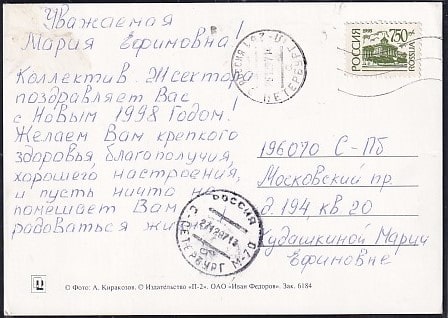 Уважаемая
Мария Ефимовна!
Коллектив Жсектора
поздравляет Вас
с Новым 1998 Годом!
Желаем Вам крепкого
здоровья, благополучия,
хорошего настроения,
и пусть ничто не
помешает Вам
радоваться жи
РОССИЯ
1995
750
ROSSIJA
196070 С-Пб
Московский пр.
д. 194 кв 20
Кудашкиной Марии
Ефимовне
РОССИЯ
С.-ПЕТЕРБУРГ М-70
© Фото: А. Киракозов. © Издательство «П-2». ОАО «Иван Федоров». Зак. 6184